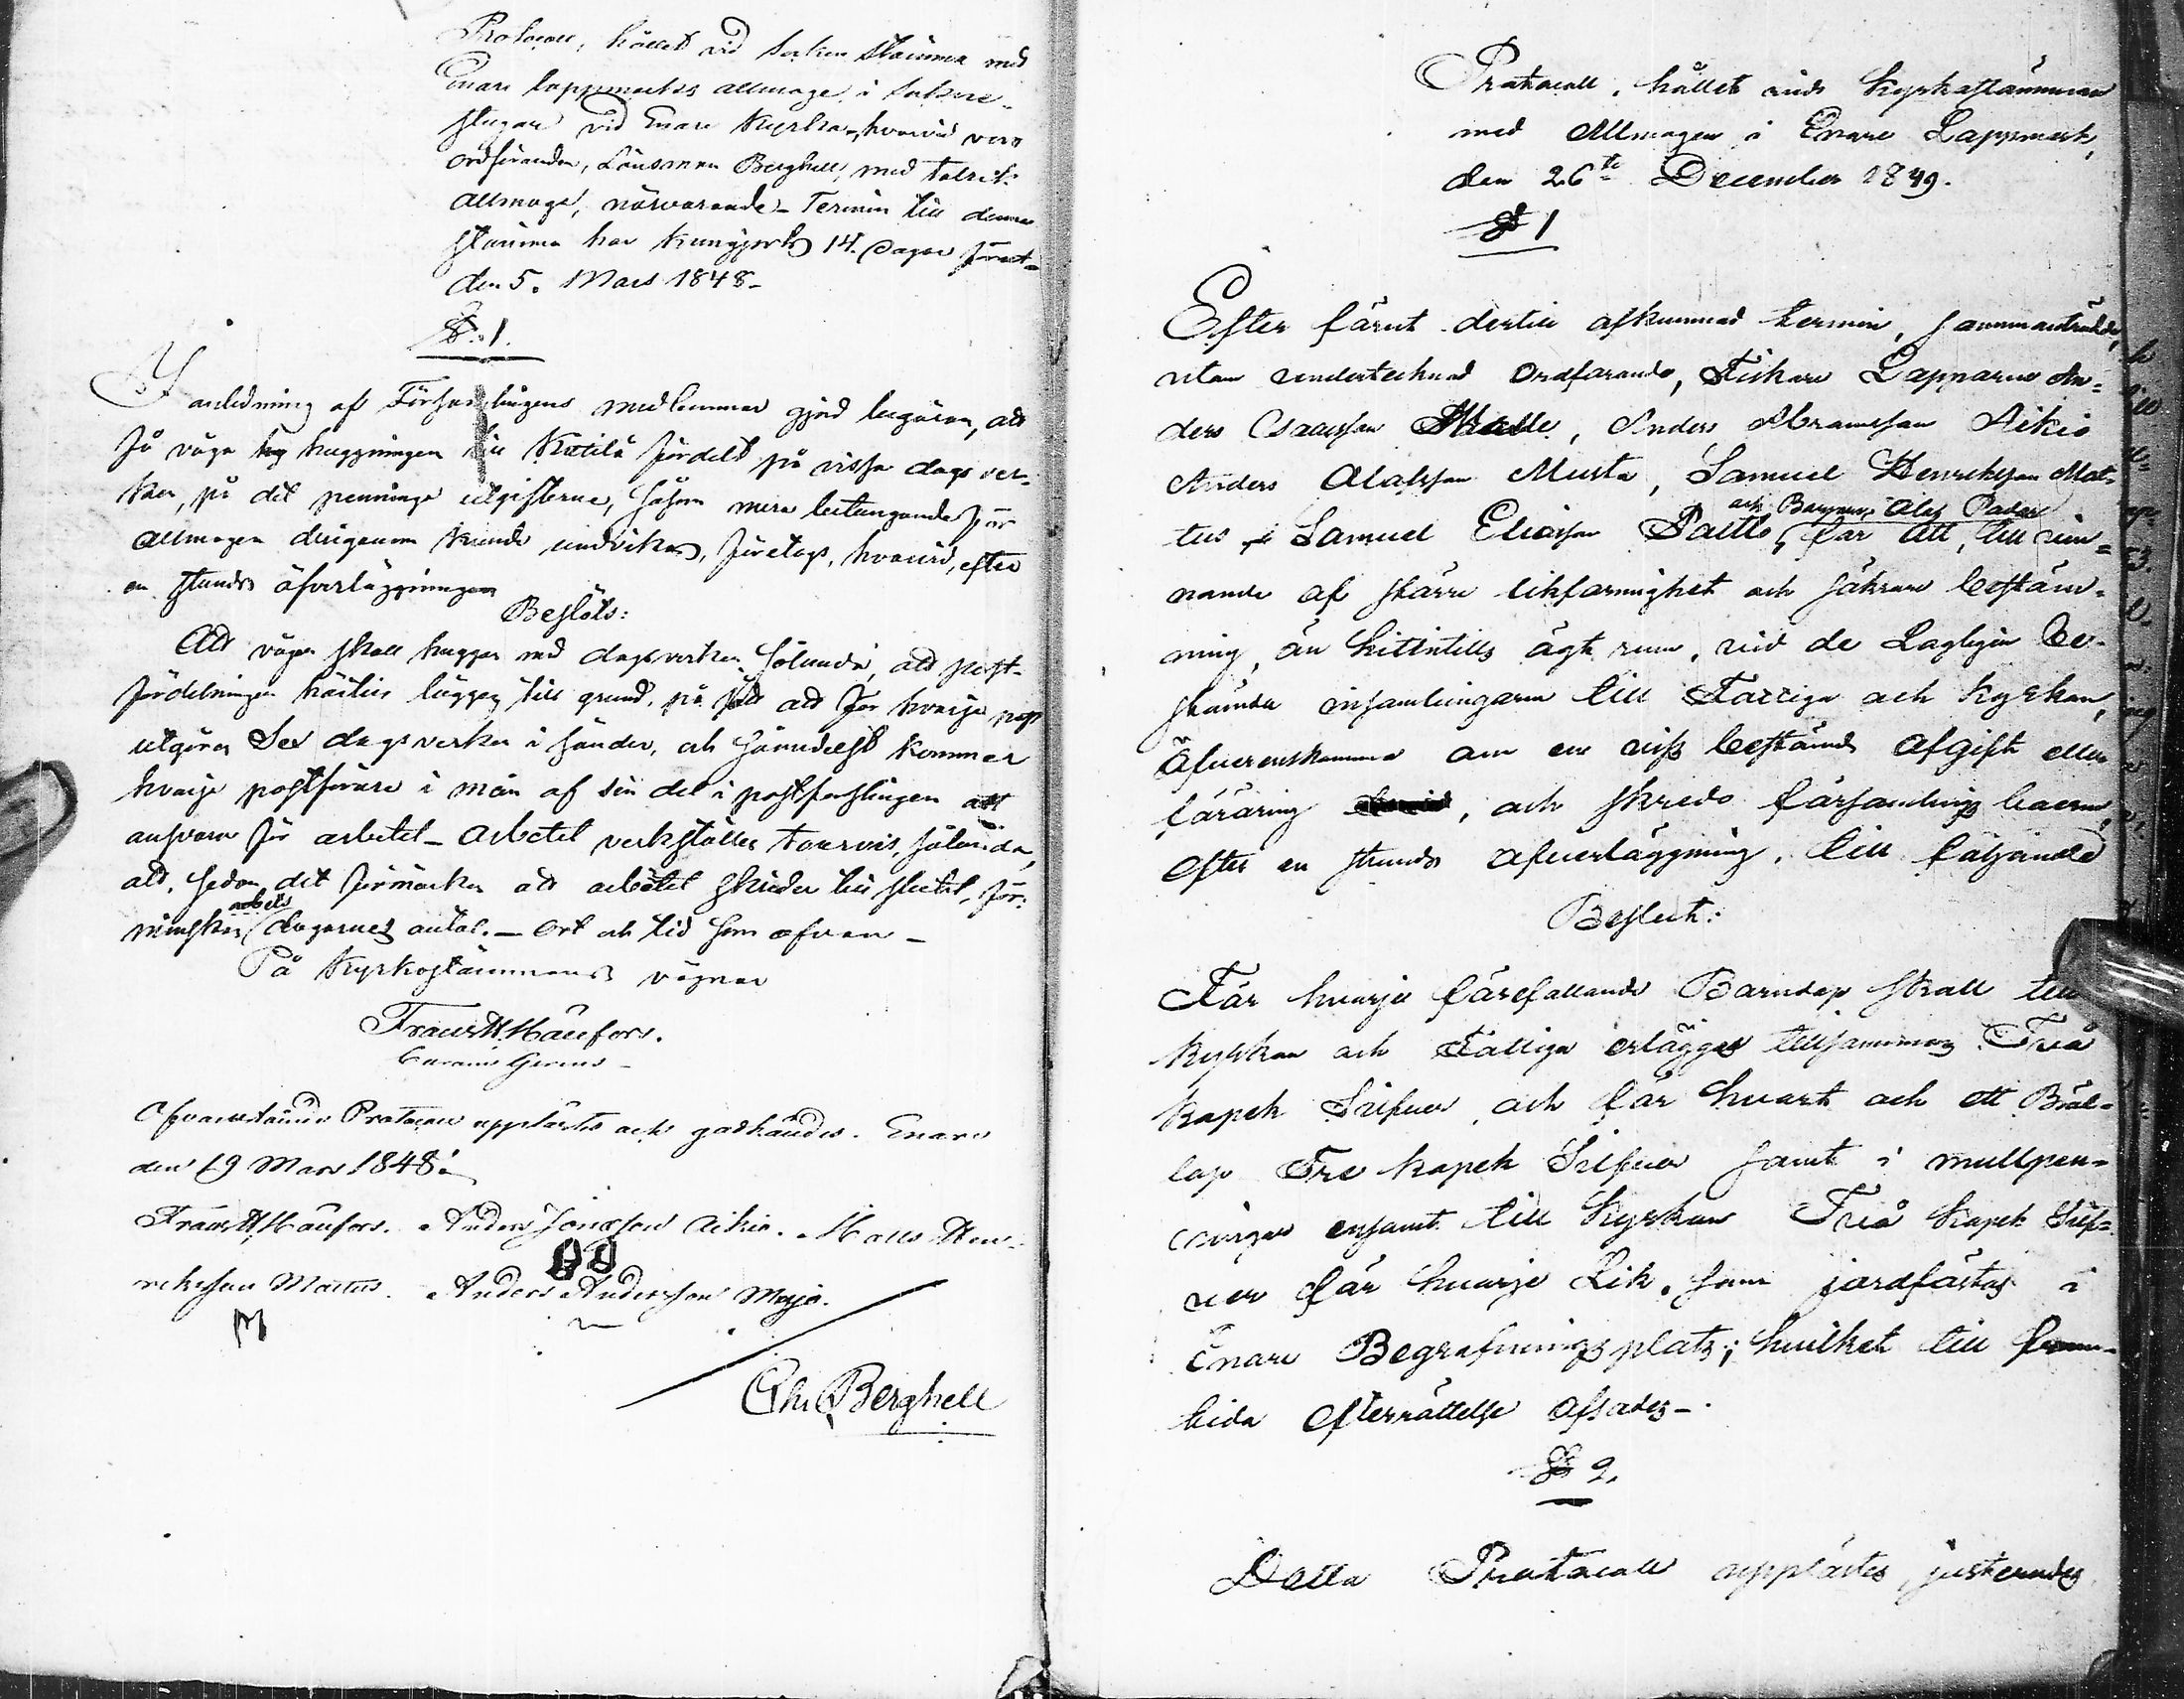 Protocoll, hållet vid Socken Stämma med
Enare lappmarks allmoge, i Sockne-
stugan vid Enare Kyrka, hvarvid voro
ordföranden, Länsman Berghell, med talrik
allmoge, närvarande - Termin till denna
stämma har kungjorts 14. Dagar förut-
den 5. Mars 1848-
§. 1.
I anledning af Församlingens medlemmar gjord begäran, att
få väga huggningen till Kutilä fördelt på vissa dags ver-
ken, på det penninge utgifterne, såsom mera betungande för
Allmogen derigenom kunde undvikas, företogs, hvarvid, efter
en stunds öfverläggningen
Beslöts:
Att vägen skall huggas med dagsverken, sålunda, att post-
fördelningen härtill lägges till grund, på sätt att för hvarje post
utgöres Sex dagsverken i sänder, och sämedelst kommer
hvarje postförare i mån af sin del i postforslingen att
ansvara för arbetet - Arbetet verkställes tourvis, sålunda,
att, sedan det förmärkes att arbetet skrider till slutet, för-
minskas arbets dagarnes antal. - Ort och tid som ofvan -
På Kyrkostämmans vägnar
Frans W Häufors.
Ofvanstående Protocoll upplästes och godkändes. Enare
den 19 Mars 1848.
Frans W Häufors. Anders Jonsson Aikio. Matts Hen-
rikssson Mattus. Anders Andersson Morja.
M
Chr Berghell
Protocoll, hållet vid Kyrkostämman
med Allmogen i Enare Lappmark,
den 26te December 1849.
§ 1
Efter förut dertill afkunnad termin, sammanträdde,
utom undertecknad Ordförande, Fiskare Lapparne An-
ders Isacsson Skalle, Anders Abramsson Aikio
Anders Olofsson Musta, Samuel Henriksson Mat-
och Borgaren Olof Pader
tus, Samuel Eliasson Paltto, för att, till vin-
nande af större likformighet och säkrare bestäm-
ning, än hittintills ägt rum, vid de Lagligen be-
stämda insamlingarna till Fattiga och Kyrkan,
öfverenskomma om en viss bestämd afgift eller
föräring, och skreds församlings boerne,
efter en stunds öfverläggning, till följande
Beslut:
För hvarje förefallande Barndop skall till
Kyrkan och Fattiga erlägges tillsammans Två
kopek Silfver, och för hvart och ett Bröl-
lop Tre kopek Silfver samt i mullpen-
ningar ensamt till Kyrkan Två kopek Silf-
ver för hvarje Lik, som jordfästes i
Enare Begrafningsplats; hvilket till fram-
tida efterrättelse afsades -.
§ 2.
Detta Protocoll upplästes, justerades